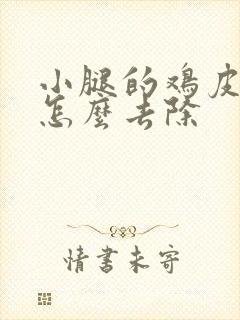 小腿的鸡皮
怎麼去除
情書未寄